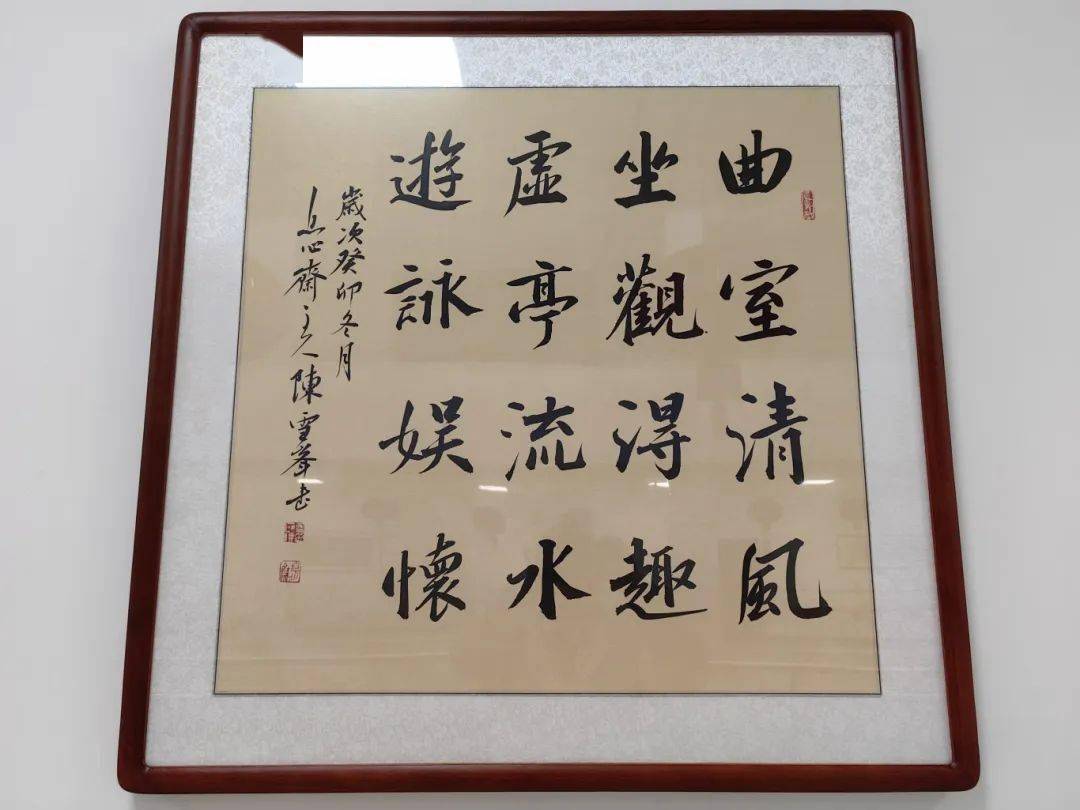 曲室清風
坐觀得趣
虛亭流水
遊詠娱懷
歲次癸卯冬月
息心齋主人陳雪峰書